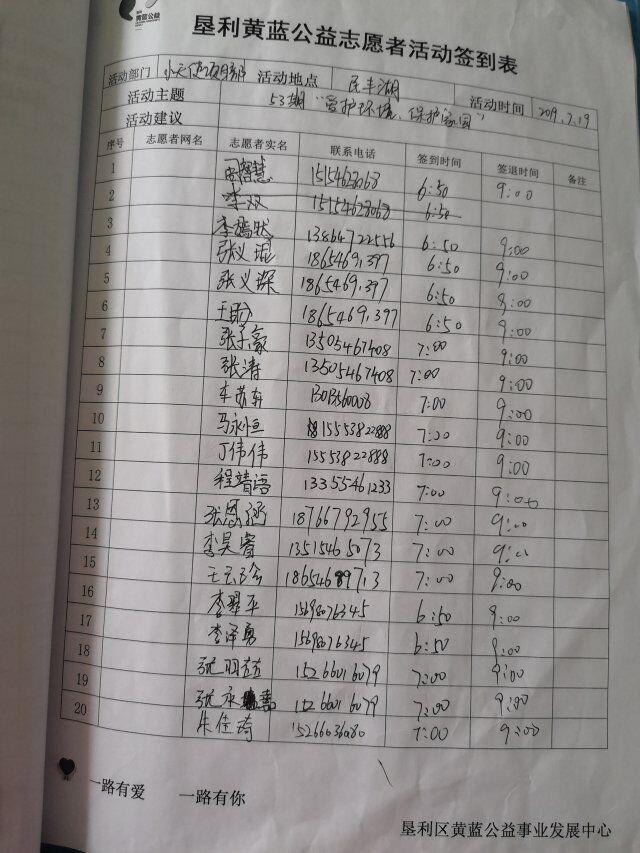 黄蓝公益
垦利黄蓝公益志愿者活动签到表
活动部门 小天使项目部 活动地点 民丰湖 活动时间 2019.7.19
活动主题 53期 "爱护环境、保护家园"
活动建议
序号 志愿者网名 志愿者实名 联系电话 签到时间 签退时间 备注
1 15154628068 6:50 9:00
2 李双 15154628068 6:50
3 李嫣然 13864722556 6:50 9:00
4 张义混 1865469,397 6:50 9:00
5 张义深 1865469,397 6:50 9:00
6 1865469,397 6:50 9:00
7 张子豪 13505467408 7:00 9:00
8 张涛 13505467408 7:00 9:00
9 车苏轩 7:00 9:00
10 马永恒 15553822888 7:00 9:00
11 丁伟伟 15553822888 7:00 9:00
12 程靖语 13355461233 7:00 9:00
13 张恩涵 18766792955 7:00 9:00
14 李昊睿 13515465073 7:00 9:00
15 7:00 9:00
16 李翠平 15698076345 6:50 9:00
17 李泽勇 15698076345 6:50 9:00
18 张羽芯 15266016079 7:00 9:00
19 张永 15266016079 7:00 9:00
20 朱佳琦 15266036080 7:00 9:00
一路有爱 一路有你
垦利区黄蓝公益事业发展中心